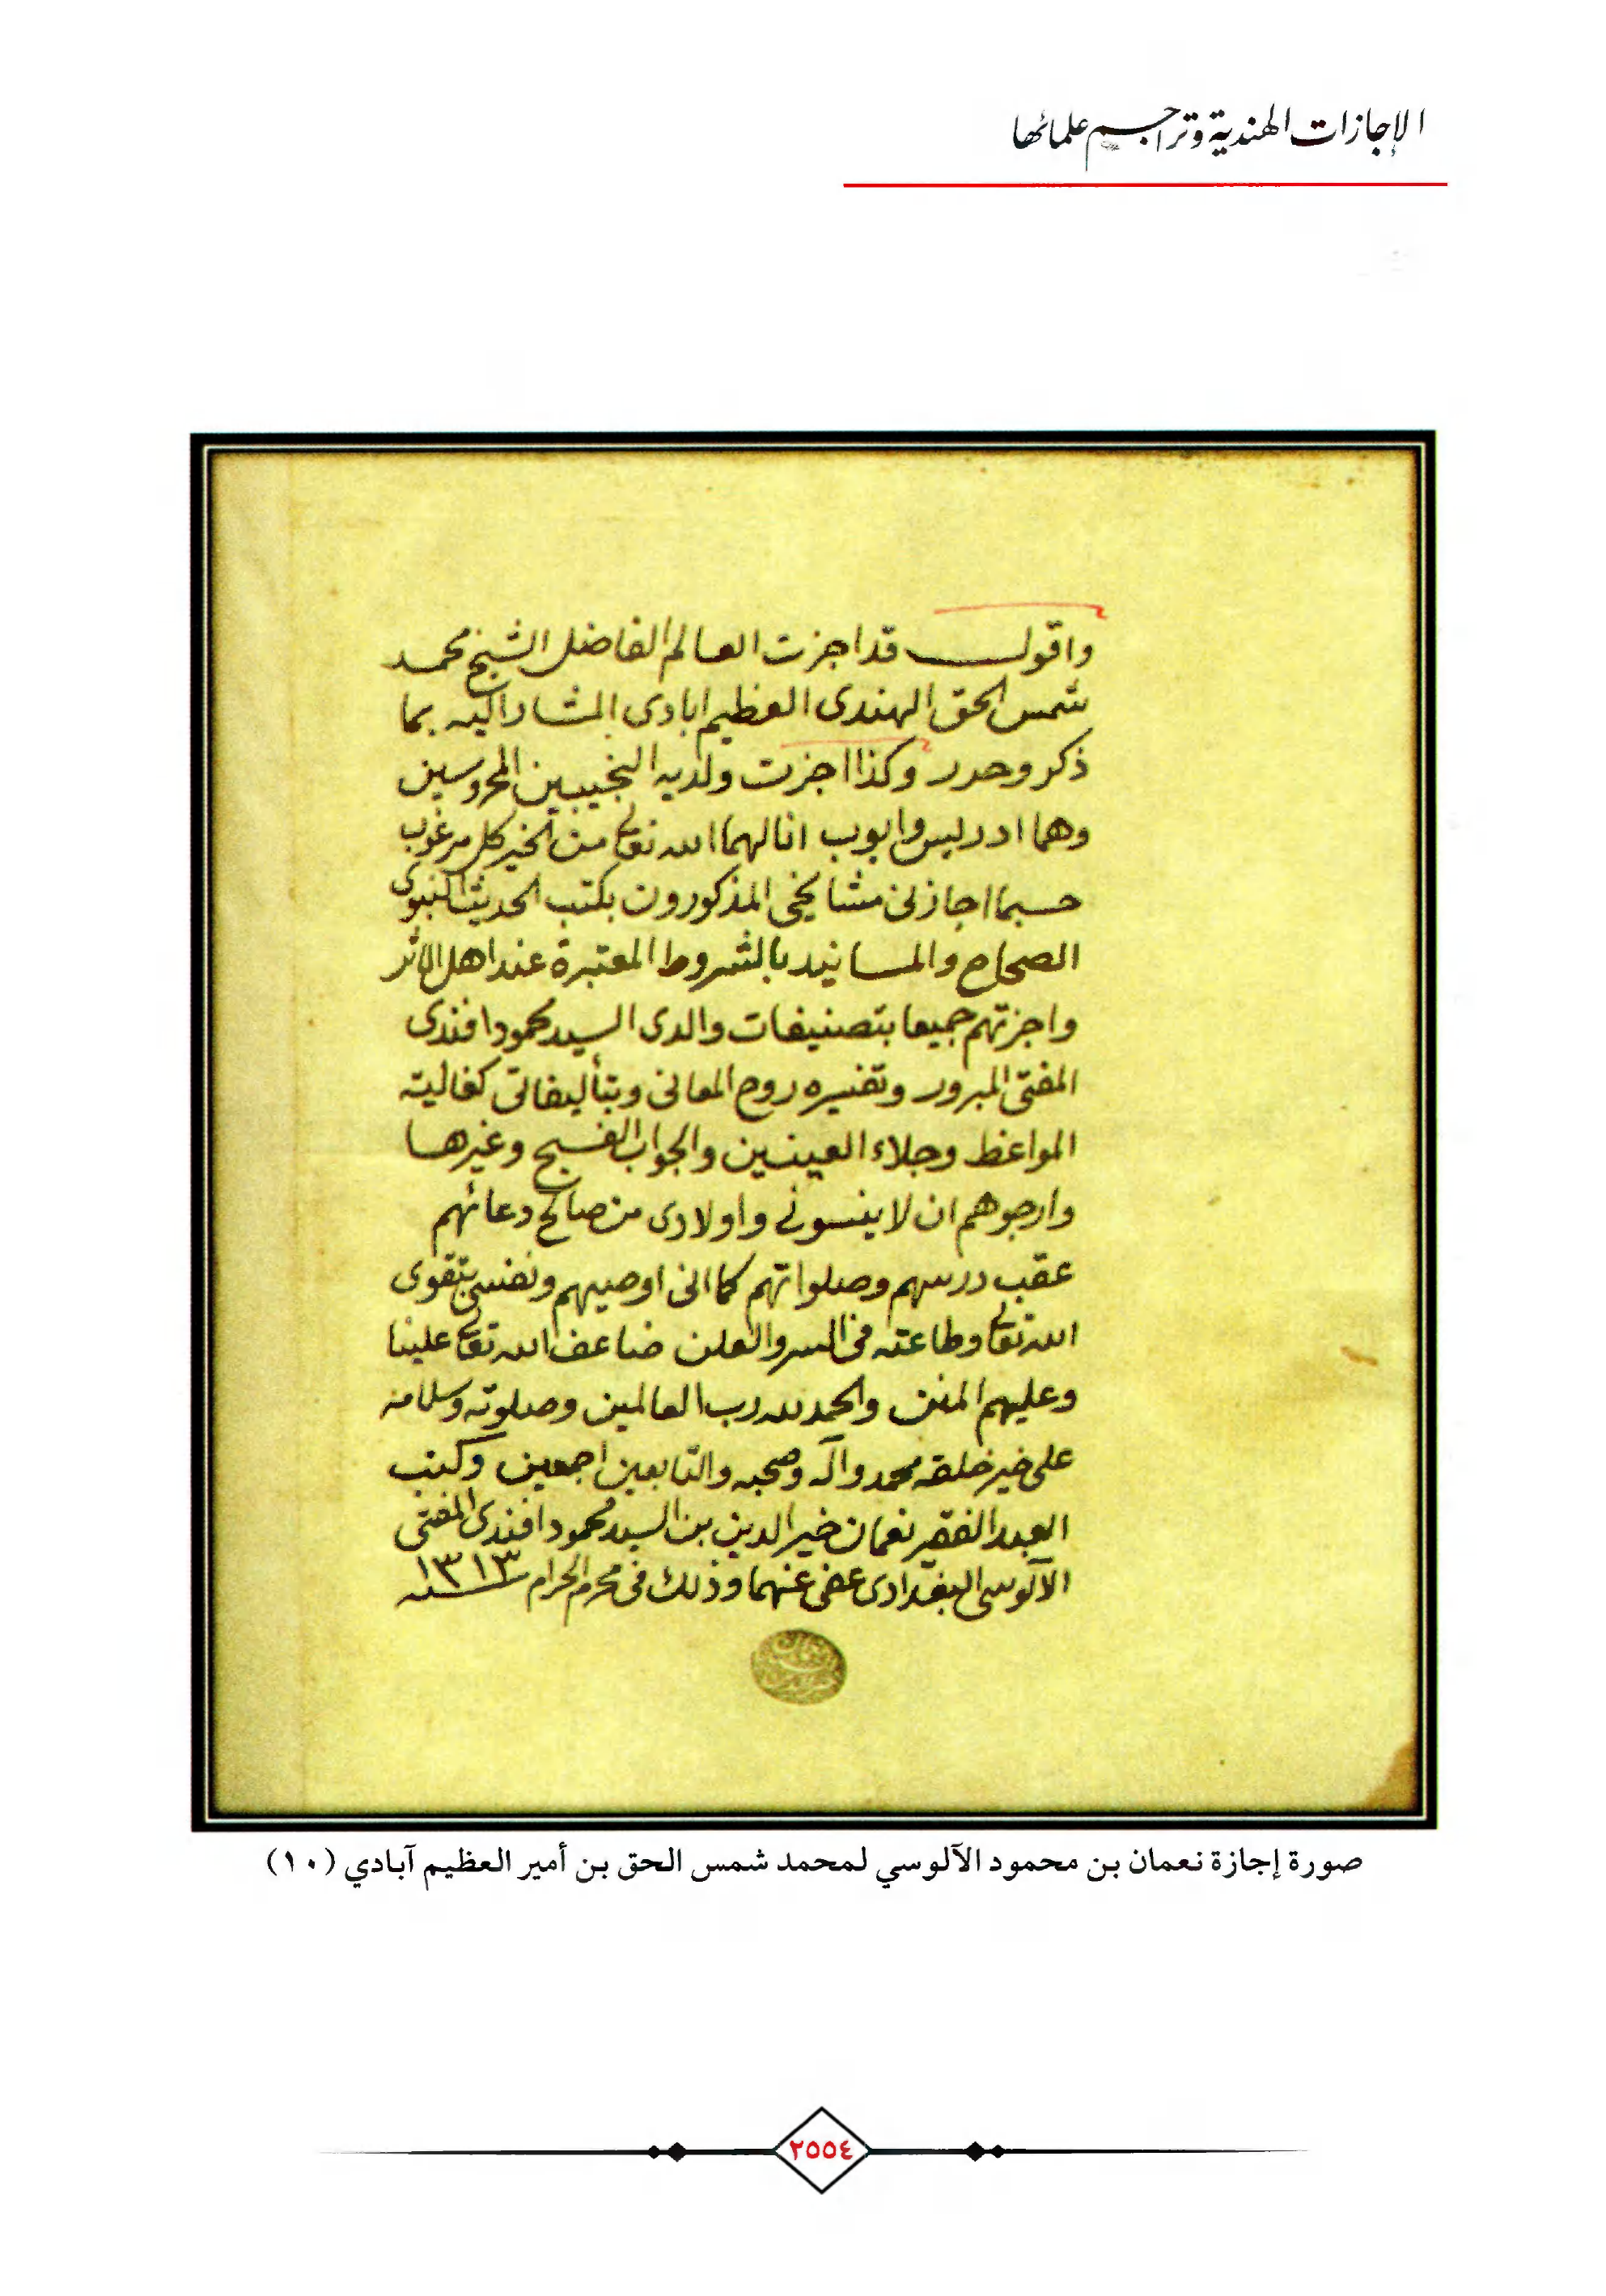 الإجازات الهندية وتراجم علمائها
واقول قد اجزت العالم الفاضل الشيخ محمد
شمس الحق الهندى العظيم ابادى المشار اليه بما
ذكر وحرر وكذا اجزت ولديه النجيبين المحروسين
وهما ادريس وايوب انالهما الله تعالى من الخير كل مرغوب
حسبما اجازنى مشايخى المذكورون بكتب الحديث النبوى
الصحاح والمسانيد بالشروط المعتبرة عند اهل الاثر
واجزتهم جميعا بتصنيفات والدى السيد محمود افندى
المفتى المبرور وتفسيره روح المعانى وبتأليفاتى كغالية
المواعظ وجلاء العينين والجواب الفسيح وغيرها
وارجوهم ان لا ينسونى واولادى من صالح دعائهم
عقب درسهم وصلواتهم كما انى اوصيهم ونفسى بتقوى
الله تعالى وطاعته فى السر والعلن ضاعف الله تعالى علينا
وعليهم المنن والحمد لله رب العالمين وصلوته وسلامه
على خير خلقه محمد وآله وصحبه والتابعين اجمعين وكتب
العبد الفقير نعمان خير الدين بن السيد محمود افندى المفتى
الآلوسى البغدادى عفى عنهما وذلك فى محرم الحرام سنه ١٣١٣
صورة إجازة نعمان بن محمود الآلوسي لمحمد شمس الحق بن أمير العظيم آبادي (١٠)
٢٥٥٤